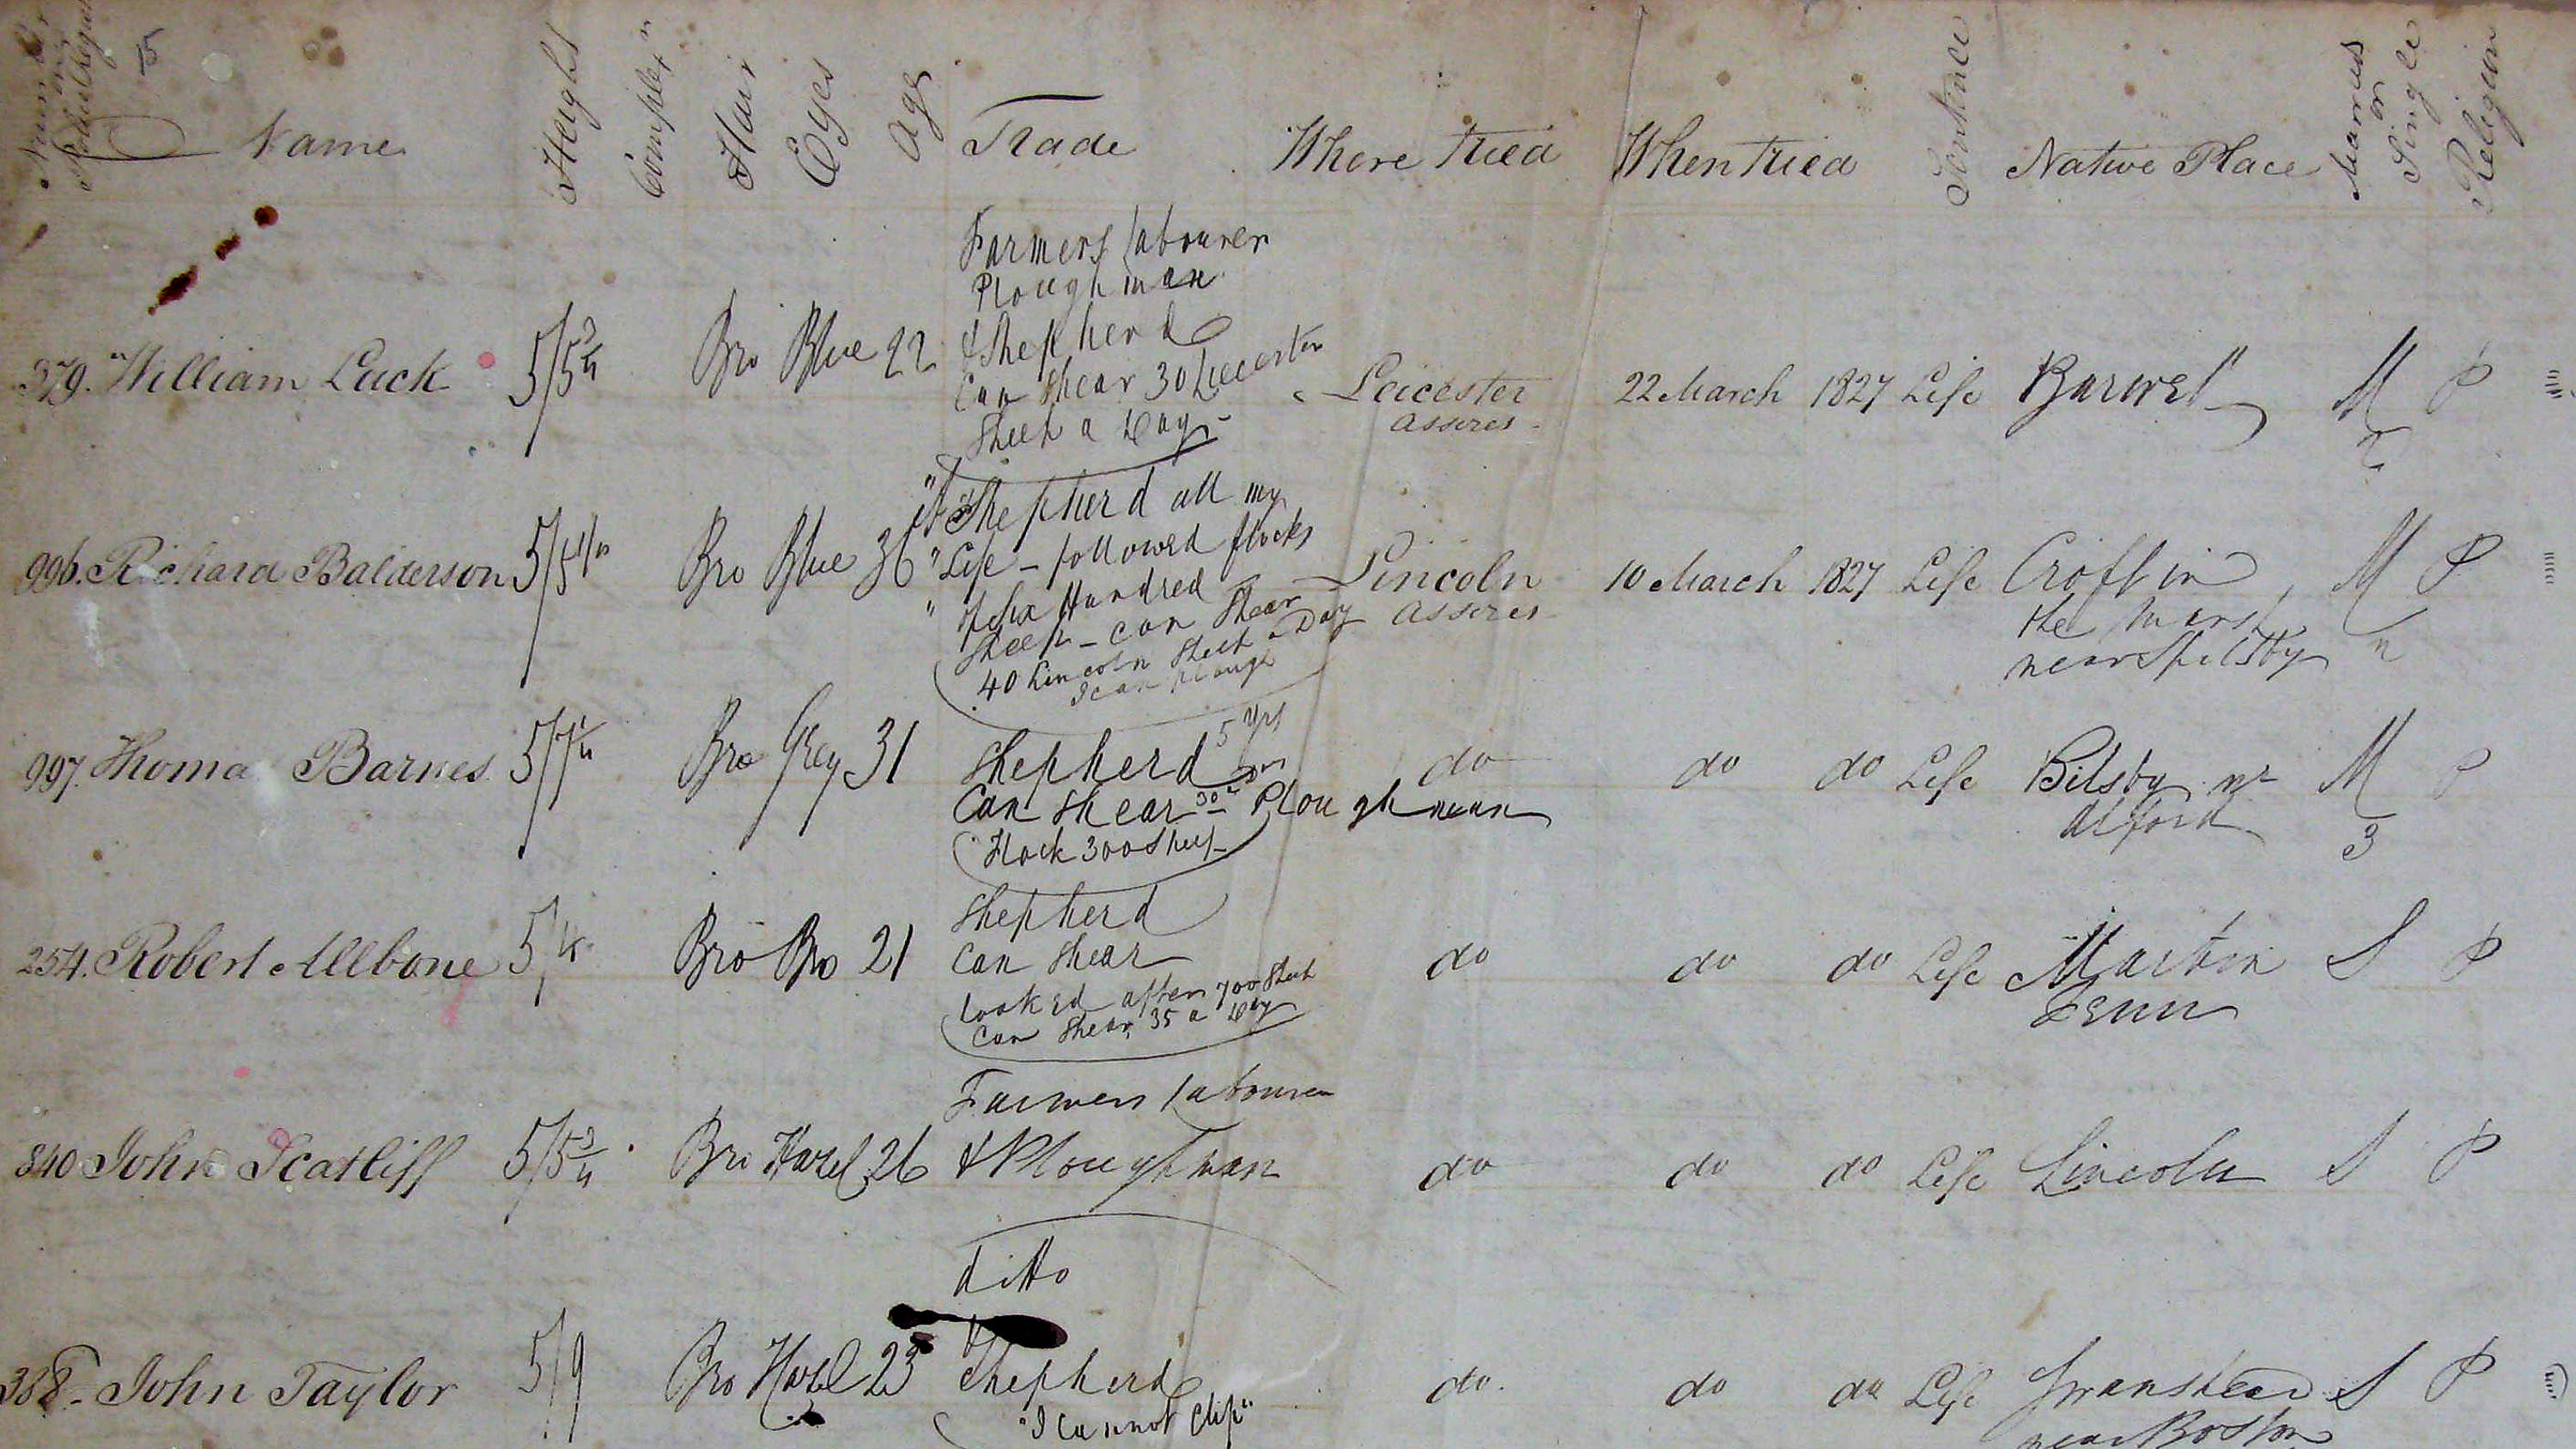 Number on Police Register 5 Name Height Complexn Hair Eyes Age Trade Where tried When tried Sentence Native Place Married or Single Religion
Farmers labourer
Plough man
& Shepherd
379. William Luck 5/5 3/4 Bro Blue 22 Can Shear 30 Leicester Leicester 22 March 1827 Life Barwel M P
Sheep a Day - Assizes -
"A Shepherd all my
996. Richard Balderson 5/5 1/2 Bro Blue 36 "Life - followed flocks Lincoln 10 March 1827 Life Croft in M P
" of Six Hundred Assizes the Marsh
Sheep - can Shear near Spilsby
40 Lincoln Sheep a Day
I can plough
Shepherd 5 yrs
997. Thomas Barnes 5/7 1/4 Bro Grey 31 Can Shear 30 Ploughman do do do Life Bilsby nr M P
Flock 300 Sheep - Alford 3
Shepherd
254. Robert Allbone 5/4 Bro Bro 21 Can Shear do do do Life Martin S P
looked after 700 Sheep Fenn
Can Shear 35 a Day
Farmers labourer
840 John Scatliff 5/5 3/4 Bro Hazel 26 & Ploughman do do do Life Lincoln S P
ditto
&
388 - John Taylor 5/9 Bro Hazel 23 Shepherd do. do do Life S P
"I cannot Clip" near Boston